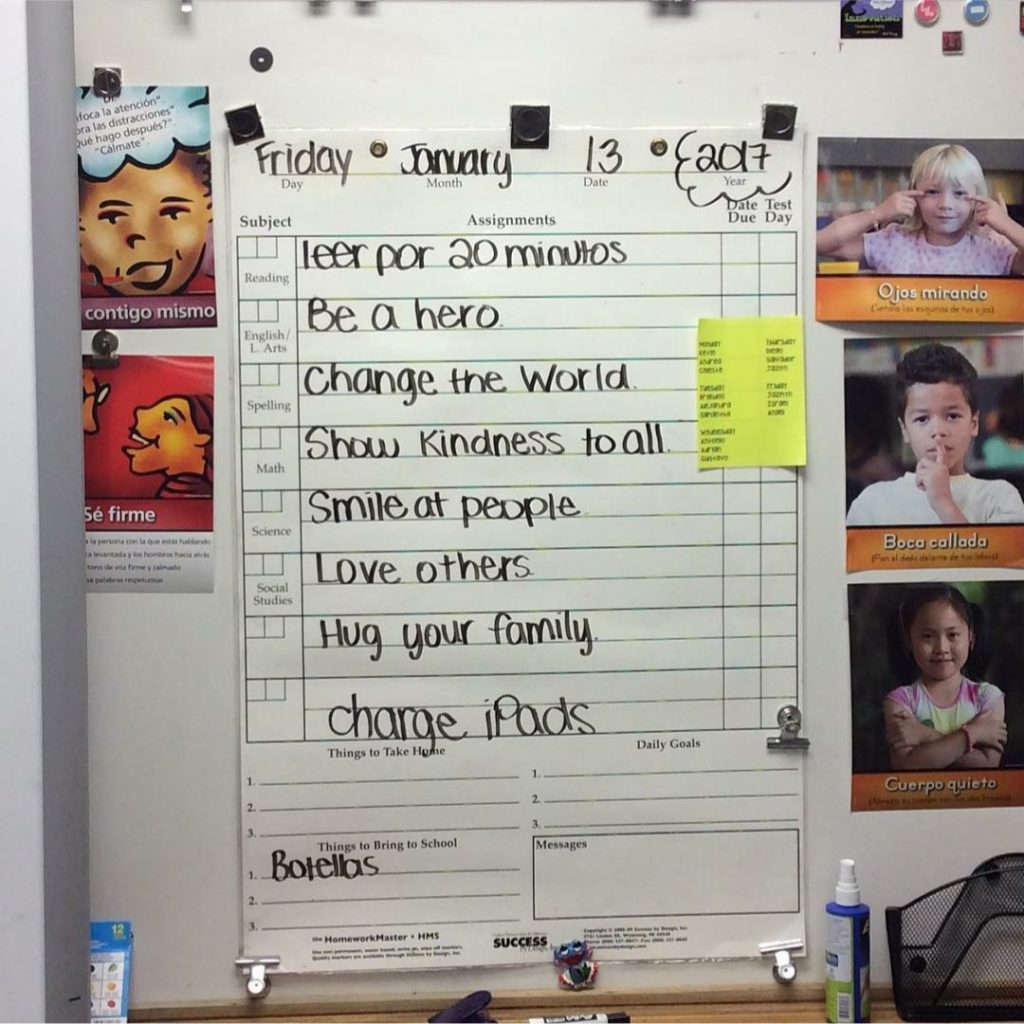 Innovation
foca la atención"
ra las distracciones"
Qué hago después?"
"Cálmate"
contigo mismo
Sé firme
a la persona con la que estás hablando
levantada y los hombros hacia atrás
tono de voz firme y calmado
sa palabras respetuosas
Friday January 13 2017
Day Month Date Year
Subject Assignments Date Due Test Day
Reading leer por 20 minutos
English/ L. Arts Be a hero.
Spelling Change the World.
Math Show kindness to all.
Science Smile at people
Social Studies Love others.
Hug your family.
charge iPads
Monday Thursday
Kevin Diego
Andrea Salvador
Celeste Jazlyn
Tuesday Friday
Brandon Jazmin
Alejandra Israel
Samantha Angel
Wednesday
Antonio
Adrian
Gustavo
Things to Take Home Daily Goals
1. 1.
2. 2.
3. 3.
Things to Bring to School
1. Botellas
2.
3.
Messages
the HomeworkMaster • HMS
SUCCESS
by Design, Inc.
Ojos mirando
Boca callada
Cuerpo quieto
12